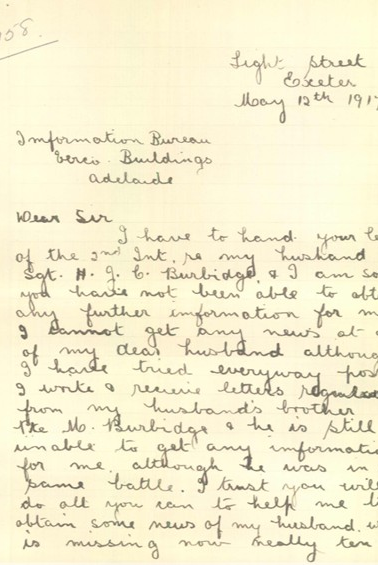 058.
Light Street
Exeter
May 12th 1917
Imformation Bureau
Verco Buildings
Adelaide
Dear Sir
I have to hand your le
of the 2nd Int, re my husband
Sgt. H. J. C. Burbidge, & I am so
you have not been able to obt
any further information for m
I cannot get any news at a
of my dear husband althoug
I have tried everyway pos
I write & receive letters
from my husband's brother
Pte M. Burbidge & he is still
unable to get any informati
for me, although he was in
same battle. I trust you will
do all you can to help me
obtain some news of my husband, w
is missing now neally ten